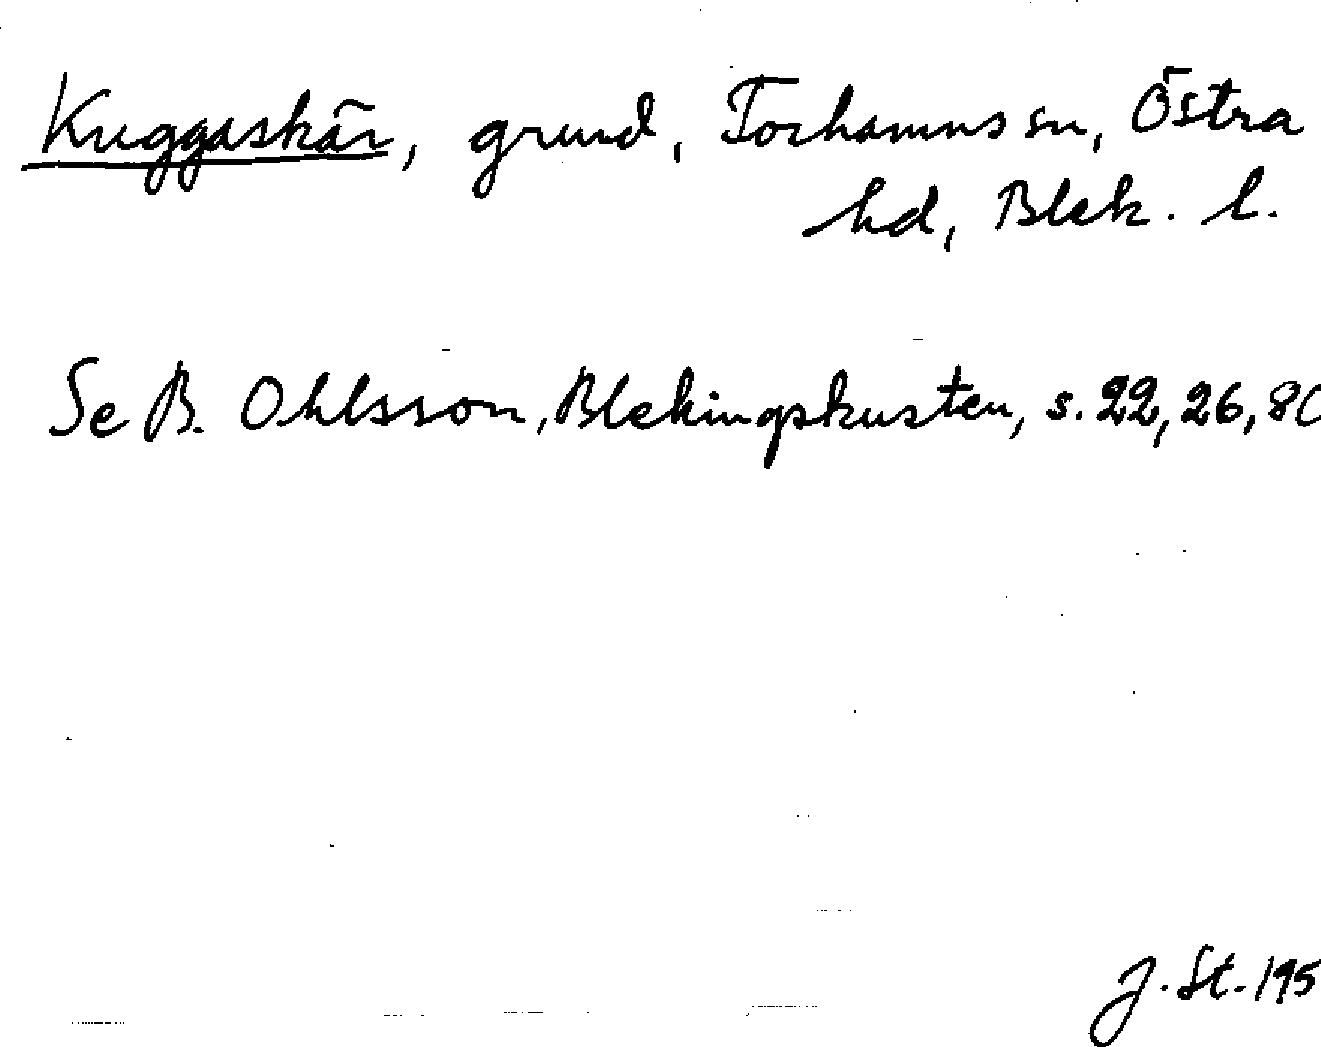 Kuggaskär, grund, Torhamns sn, Östra
hd, Blek. l.
Se B. Ohlsson, Blekingskusten, s. 22, 26, 80
J. St. 195